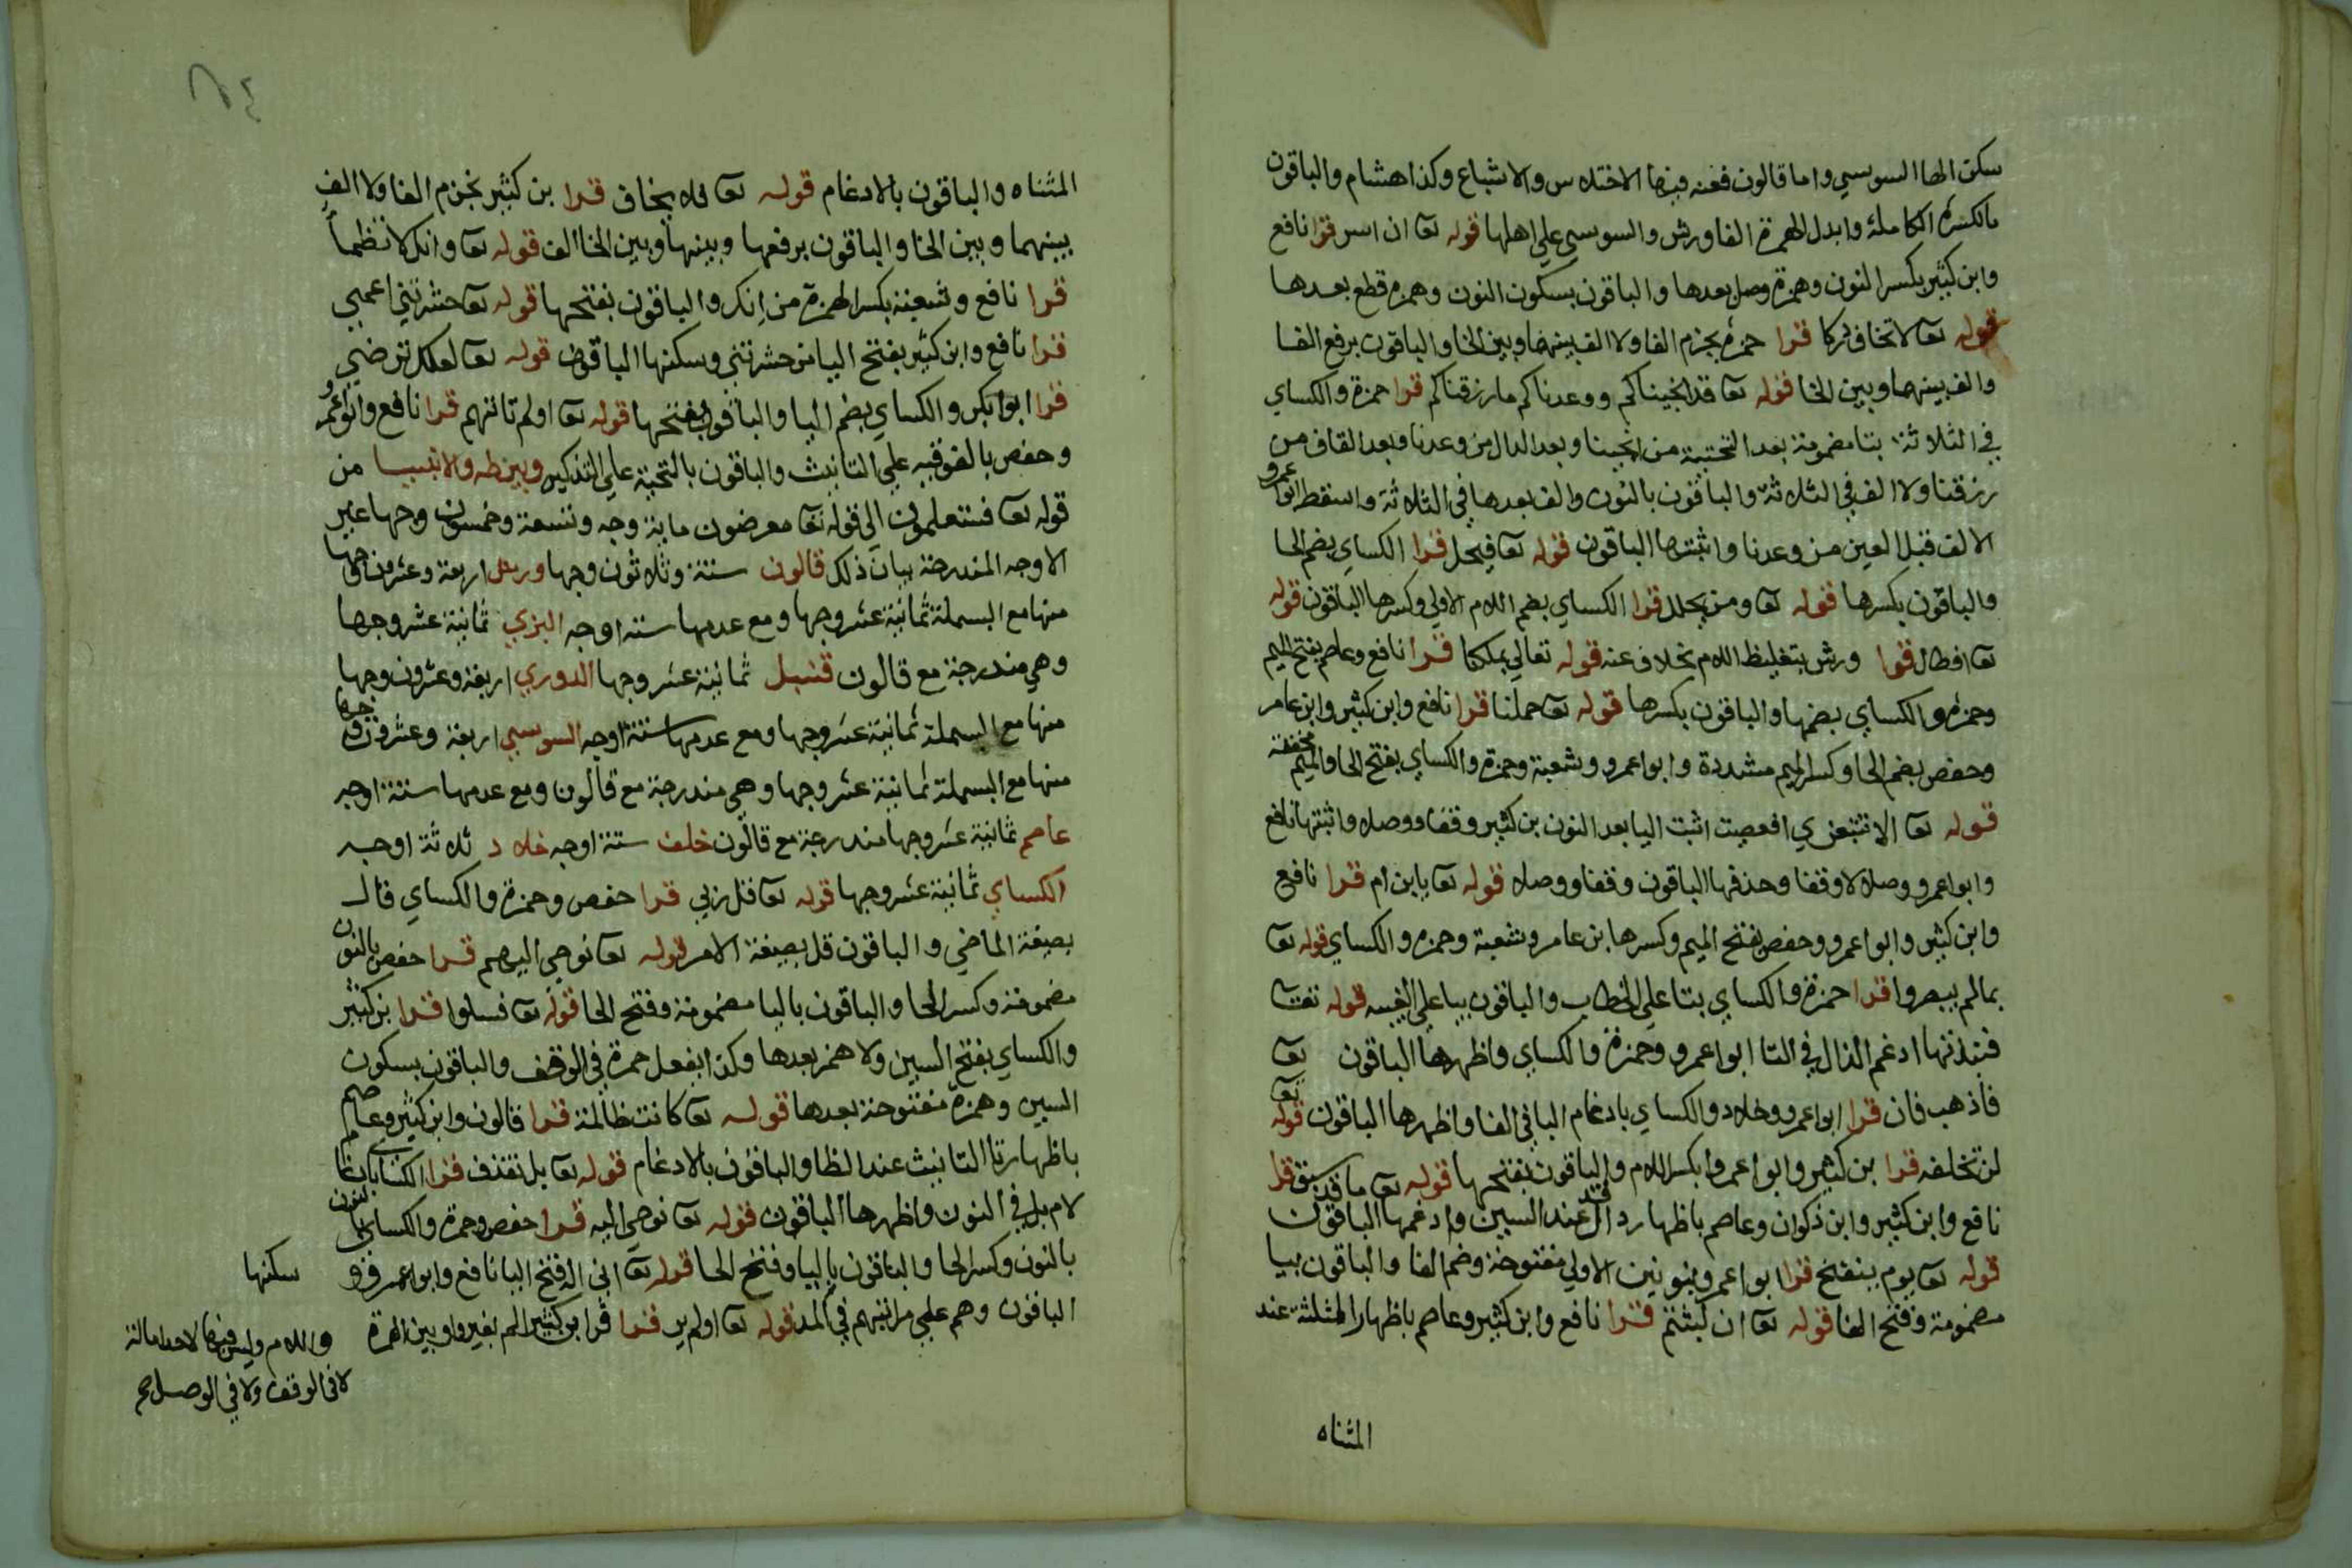 سكن الها السوسي واما قالون فعنه فيها الاختلاس والاشباع وكذا هشام والباقون
بالكسرة الكاملة وابدل الهمزة الفا ورش والسوسي علي اصلها قوله تعا ان اسر قرا نافع
وابن كثير بكسر النون وهمزة وصل بعدها والباقون بسكون النون وهمزه قطع بعدها
قوله تعا لا تخاف دركا قرا حمزة بجزم الفا ولا الف بينهما وبين الخا والباقون برفع الفا
والف بينهما وبين الخا قوله تعا قد انجيناكم ووعدناكم ما رزقناكم قرا حمزة والكساي
في الثلاثة بتا مضمومة بعد التحتية من انجينا وبعد الدال من وعدنا وبعد القاف من
رزقنا ولا الف في الثلاثة والباقون بالنون والف بعدها في الثلاثة واسقط ابو عمرو
الالف قبل العين من وعدنا واثبتها الباقون قوله تعا فيحل قرا الكساي بضم الحا
والباقون بكسرها قوله تعا ومن يحلل قرا الكساي بضم اللام الاولي وكسرها الباقون قوله
تعا افطال قرا ورش بتغليظ اللام بخلاف عنه قوله تعالي بملكنا قرا نافع وعاصم بفتح الميم
وحمزة والكساي بضمها والباقون بكسرها قوله تعا حملنا قرا نافع وابن كثير وابن عامر
وحفص بضم الحا وكسر الميم مشددة وابو عمرو وشعبة وحمزة والكساي بفتح الحا والميم مخففة
قوله تعا الا تتبعن ي افعصيت اثبت اليا بعد النون بن كثير وقفا ووصلا واثبتها نافع
وابو عمرو وصلا لا وقفا وحذفها الباقون وقفا ووصلا قوله تعا يا بن ام قرا نافع
وابن كثير وابو اعمرو وحفص بفتح الميم وكسرها ابن عامر وشعبة وحمزه والكساي قوله تعا
بما لم يبصروا قرا حمزة والكساي بتا علي الخطاب والباقون بيا علي الغيبه قوله تعا
فنبذتها ادغم الذال في التا ابو اعمرو وحمزة والكساي واظهرها الباقون تعا
فاذهب فان قرا ابو اعمرو وخلاد والكساي بادغام البا في الفا واظهرها الباقون قوله تعا
لن تخلفه قرا بن كثير وابو اعمرو بكسر اللام والباقون بفتحها قوله تعا ما قد سبق قرا
نافع وابن كثير وابن ذكوان وعاصم باظهار دال قد عند السين وادغمها الباقون
قوله تعا يوم ينفخ قرا ابو اعمرو بنونين الاولي مفتوحة وضم الفا والباقون بيا
مضمومة وفتح الفا قوله تعا ان لبثتم قرا نافع وابن كثير وعاصم باظهار المثلثة عند
المثناه
٦٤
المثناه والباقون بالادغام قوله تعا فلا يخاف قرا بن كثير بجزم الفا ولا الف
بينهما وبين الخا والباقون برفعها وبينها وبين الخا الف قوله تعا وانك لا تظما
قرا نافع وشعبة بكسر الهمزة من انك والباقون بفتحها قوله تعا حشرتني اعمي
قرا نافع وابن كثير بفتح اليا من حشرتني وسكنها الباقون قوله تعا لعلك ترضي
قرا ابو ابكر والكساي بضم اليا والباقون بفتحها قوله تعا اولم تاتهم قرا نافع وابو عمرو
وحفص بالفوقيه علي التانيث والباقون بالتحية علي التذكير وبين طه والانبيا من
قوله تعا فستعلمون الي قوله تعا معرضون ماية وجه وتسعة وخمسون وجها غير
الاوجه المندرجة بيان ذلك قالون ستة وثلاثون وجها ورش اربعة وعشرون وجها
منها مع البسملة ثمانية عشر وجها ومع عدمها ستة اوجه البزي ثمانية عشر وجها
وهي مندرجة مع قالون قنبل ثمانية عشر وجها الدوري اربعة وعشرون وجها
منها مع البسملة ثمانية عشر وجها ومع عدمها ستة اوجه السوسي اربعة وعشرون وجها
منها مع البسملة ثمانية عشر وجها وهي مندرجة مع قالون ومع عدمها ستة اوجه
عاصم ثمانية عشر وجها مندرجة مع قالون خلف ستة اوجه خلاد ثلاثة اوجه
الكساي ثمانية عشر وجها قوله تعا قل ربي قرا حفص وحمزة والكساي قال
بصيغة الماضي والباقون قل بصيغة الامر قوله تعا نوحي اليهم قرا حفص بالنون
مضمومة وكسر الحا والباقون باليا مضمومة وفتح الحا قوله تعا فسلوا قرا بن كثير
والكساي بفتح السين ولا همز بعدها وكذا يفعل حمزة في الوقف والباقون بسكون
السين وهمزة مفتوحة بعدها قوله تعا كانت ظالمة قرا قالون وابن كثير وعاصم
باظهار تا التانيث عند الظا والباقون بالادغام قوله تعا بل نقذف قرا الكساي بادغام
لام بل في النون واظهرها الباقون قوله تعا نوحي اليه قرا حفص وحمزة والكساي بالنون
بالنون وكسر الحا والباقون باليا وفتح الحا قوله تعا اني اله فتح اليا نافع وابو اعمرو و سكنها
الباقون وهم علي مراتبهم في المد قوله تعا اولم ير قرا قرا ابن كثير الم بغير واو بين الهمزة
واللام وليس فيها لاحد امالة
لا في الوقف ولا في الوصل صح